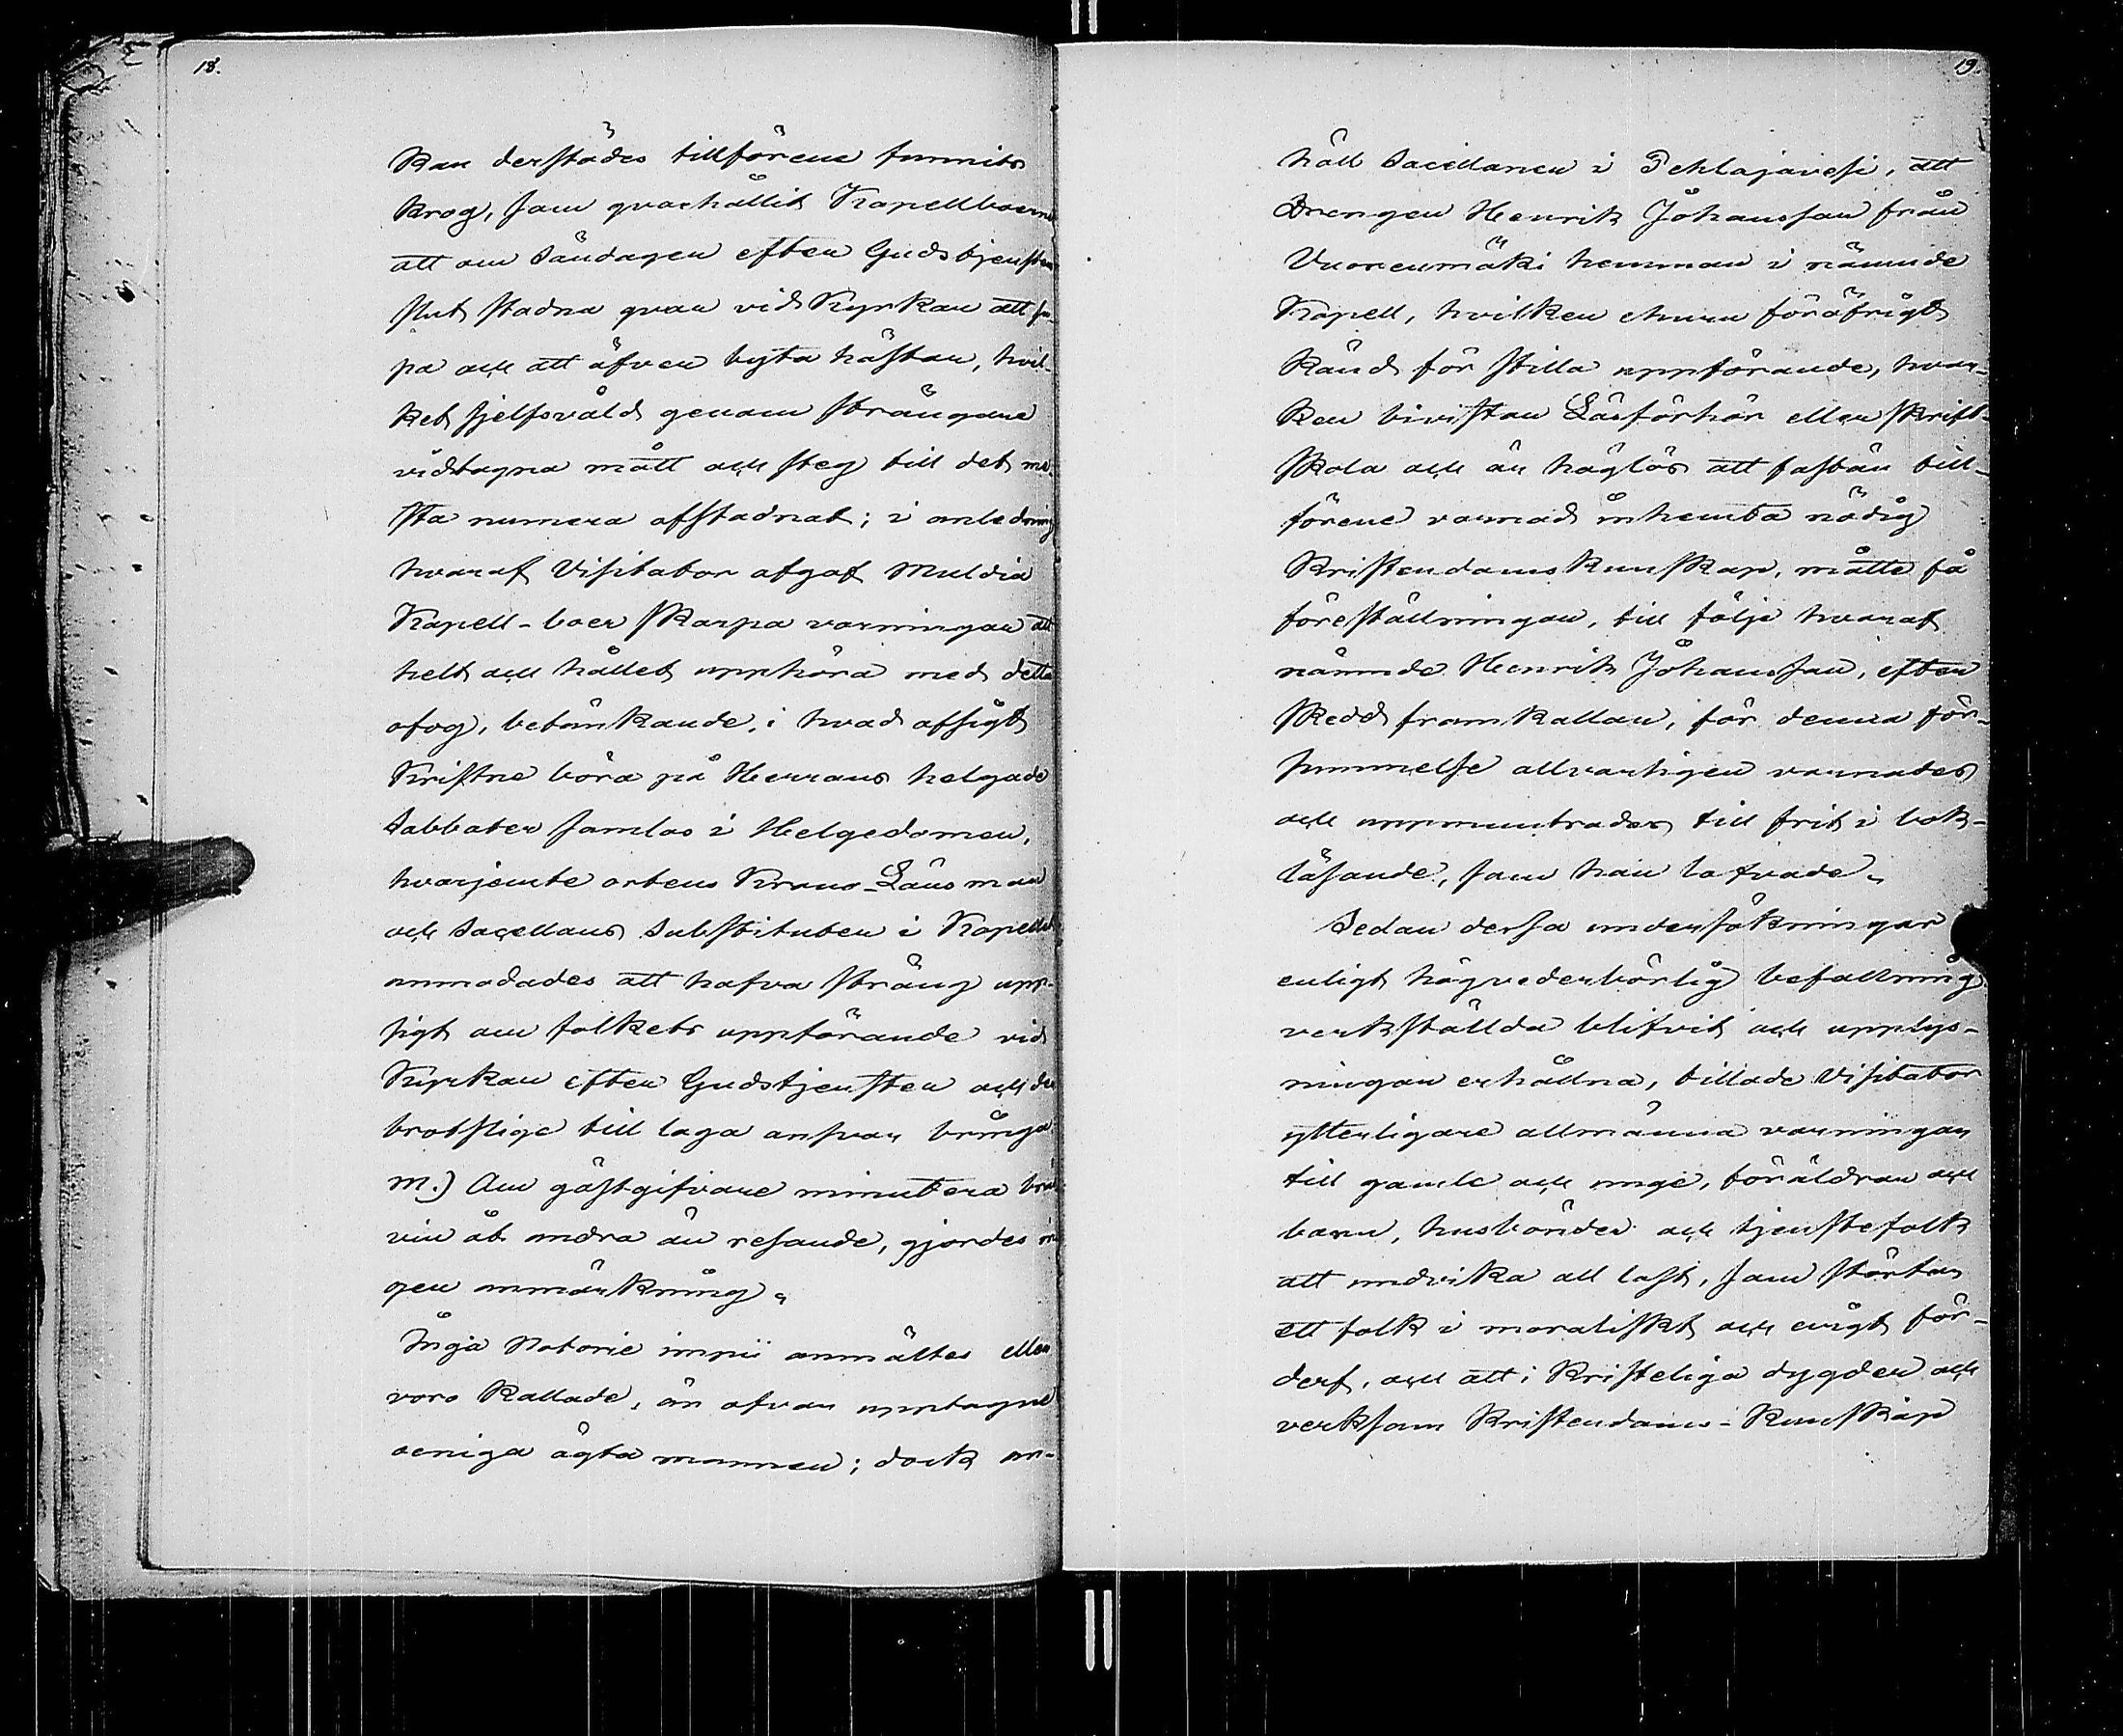 18.
kan derstädes tillförene funnits
krog, som qvarhållit Kapellboerne
att om Söndagen efter Gudstjensten
slut stadna qvar vid Kyrkan att su-
pa och att äfven byta hästar, hvil-
ket sjelfsvåld genom strängare
vidtagna mått och steg till det me-
sta numera afstadnat; i anledning
hvaraf Visitator afgaf Muldia
Kapell-boer skarpa varningar att
helt och hållet upphöra med detta
ofog, betänkande, i hvad afsigt
Kristne böra på Herrans helgade
Sabbater samlas i Helgedomen,
hvarjemte ortens Krono-Länsman
och Sacellans Substituten i Kapellet
anmodades att hafva sträng upp-
sigt om folkets uppförande vid
Kyrkan efter Gudstjensten och de
brottslige till laga ansvar bringa.
m.) Om gästgifvare minutera brän-
vin åt andra än resande, gjordes in-
gen anmärkning.
Inga Notorie impii anmältes eller
voro kallade, än ofvan upptagne
oeniga ägta mannen; dock an-
19.
höll Sacellanen i Pehlajavesi, att
Drengen Henrik Johansson från
Vuorenmäki hemman i nämnde
Kapell, hvilken ehuru föröfrigt
känd för stilla uppförande, hvar-
ken bivistar Läsförhör eller skrift-
skola och är håglös att fastän till-
förene varnad inhemta nödig
Kristendomskunskap, måtte få
föreställningar, till följe hvaraf
nämnde Henrik Johansson, efter
skedd framkallan, för denna för-
summelse allvarligen varnades
och uppmuntrades till frit i bok-
läsande, som han lofvade.
Sedan dessa undersökningar
enligt högvederbörlig befallning
verkställda blifvit och upplys-
ningar erhållna, tillade Visitator
ytterligare allmänna varningar
till gamle och unge, föräldrar och
barn, husbönder och tjenstefolk
att undvika all last, som störtar
ett folk i moraliskt och evigt för-
derf, och att i Kristeliga dygder och
verksam Kristendoms-Kunskap